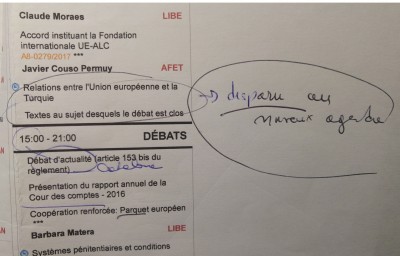 Claude Moraes LIBE
Accord instituant la Fondation
internationale UE-ALC
A8-0279/2017 ***
Javier Couso Permuy AFET
Relations entre l'Union européenne et la
Turquie
Textes au sujet desquels le débat est clos
disparu au
nouveau agenda
15:00 - 21:00 DÉBATS
Débat d'actualité (article 153 bis du
règlement)
Présentation du rapport annuel de la
Cour des comptes - 2016
Coopération renforcée: Parquet européen
***
Barbara Matera LIBE
Systèmes pénitentiaires et conditions